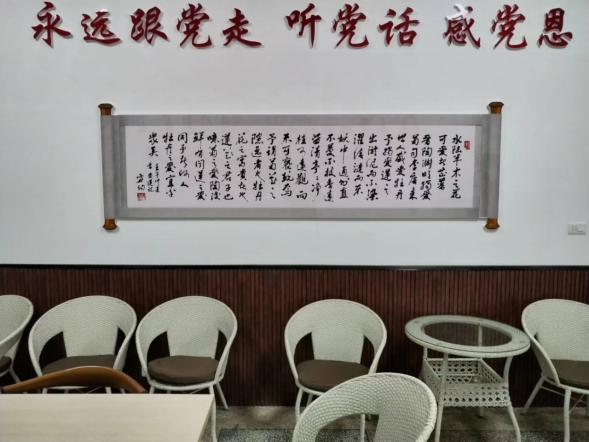 永远跟党走 听党话 感党恩
水陆草木之花
可爱者甚蕃
晋陶渊明独爱
菊自李唐来
世人盛爱牡丹
予独爱莲之
出淤泥而不染
濯清涟而不
妖中通外直
不蔓不枝香远
益清亭亭净
植可远观而
不可亵玩焉
予谓菊花之
隐逸者也牡丹
花之富贵者也
莲花之君子也
噫菊之爱陶后
鲜有闻莲之爱
同予者何人
牡丹之爱宜乎
众矣